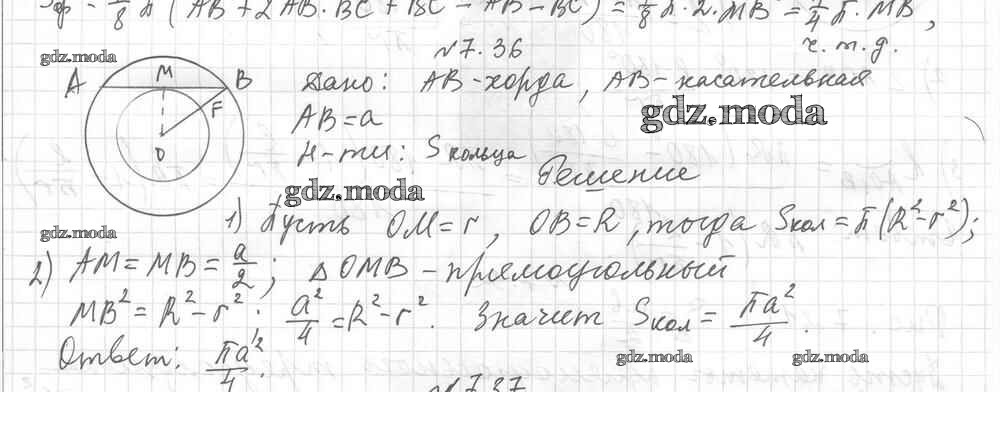 = 1/8 π (AB² + 2AB·BC + BC² − AB² − BC²) = 1/8 π · 2 · MB² = 1/4 π · MB²,
ч.т.д.
№7.36
gdz.moda
A M B F O
Дано: AB-хорда, AB-касательная
gdz.moda
AB=a
Н-ти: Sкольца
Решение
gdz.moda
gdz.moda
1) Пусть OM=r, OB=R, тогда Sкол=π(R²−r²);
2) AM=MB=a/2; △OMB-прямоугольный
MB²=R²−r²; a²/4=R²−r². Значит Sкол=πa²/4.
Ответ: πa²/4.
gdz.moda
gdz.moda
№7.37